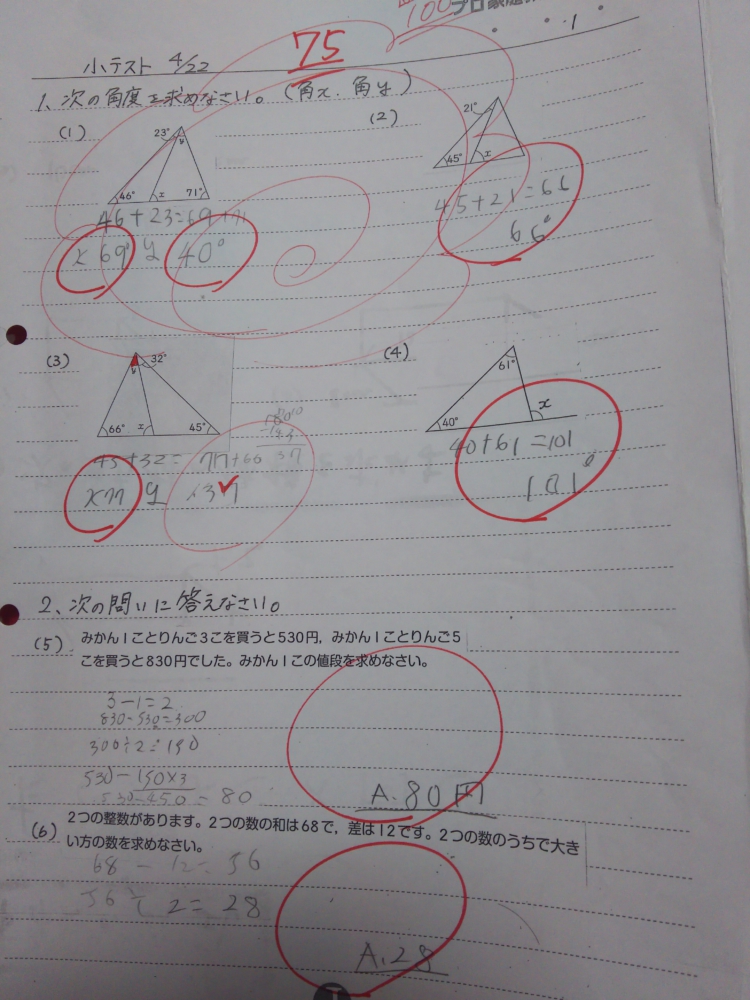 100
75
小テスト 4/22
1、次の角度を求めなさい。(角x、角y)
(1)
23°
y
46°
x
71°
46+23=69+71
x 69° y 40°
(2)
21°
45°
x
45+21=66
66°
(3)
32°
y
66°
x
45°
45+32= 77+66
x77 y 37
(4)
61°
40°
x
40+61=101
101°
2、次の問いに答えなさい。
(5) みかん1ことりんご3こを買うと530円,みかん1ことりんご5
こを買うと830円でした。みかん1この値段を求めなさい。
3-1=2
830-530=300
300÷2=150
530-150×3
530-450=80
A.80円
(6) 2つの整数があります。2つの数の和は68で,差は12です。2つの数のうちで大き
い方の数を求めなさい。
68-12=56
56÷2=28
A.28